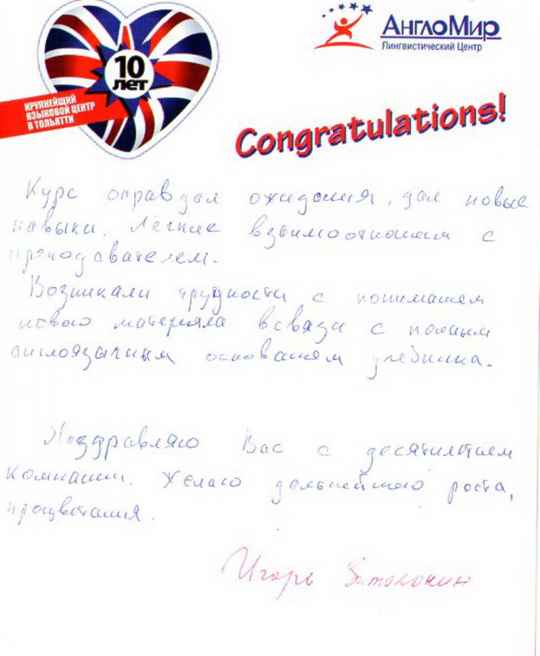 10
лет
КРУПНЕЙШИЙ
ЯЗЫКОВОЙ ЦЕНТР
В ТОЛЬЯТТИ
АнглоМир
Лингвистический Центр
Congratulations!
Курс оправдал ожидания, дал новые
навыки. Легкие взаимоотношения с
преподавателем.
Возникали трудности с пониманием
нового материала всвязи с полным
англоязычным основанием учебника.
Поздравляю Вас с десятилетием
компании. Желаю дальнейшего роста,
процветания.
Игорь